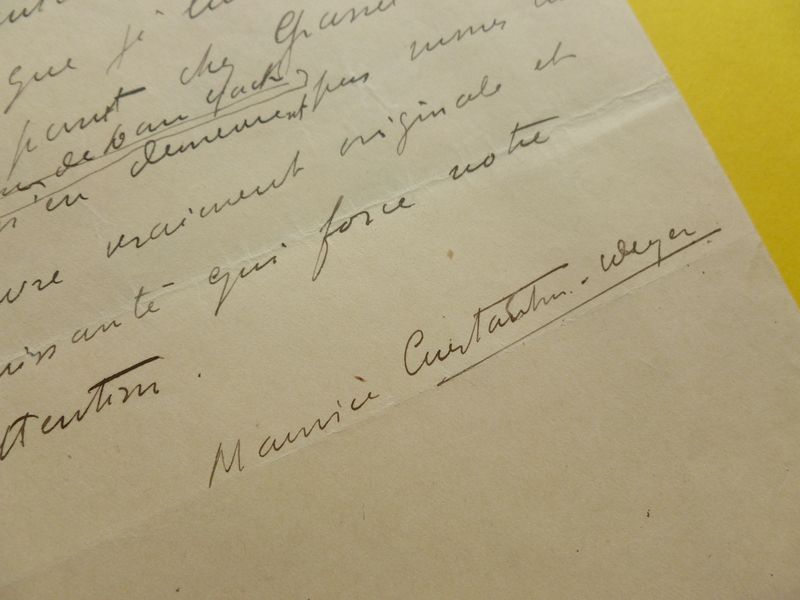 que je
parait chez Grasset
n'en demeurent pas moins
vraiment originale et
puissante qui force notre
attention.
Maurice Constantin-Weyer